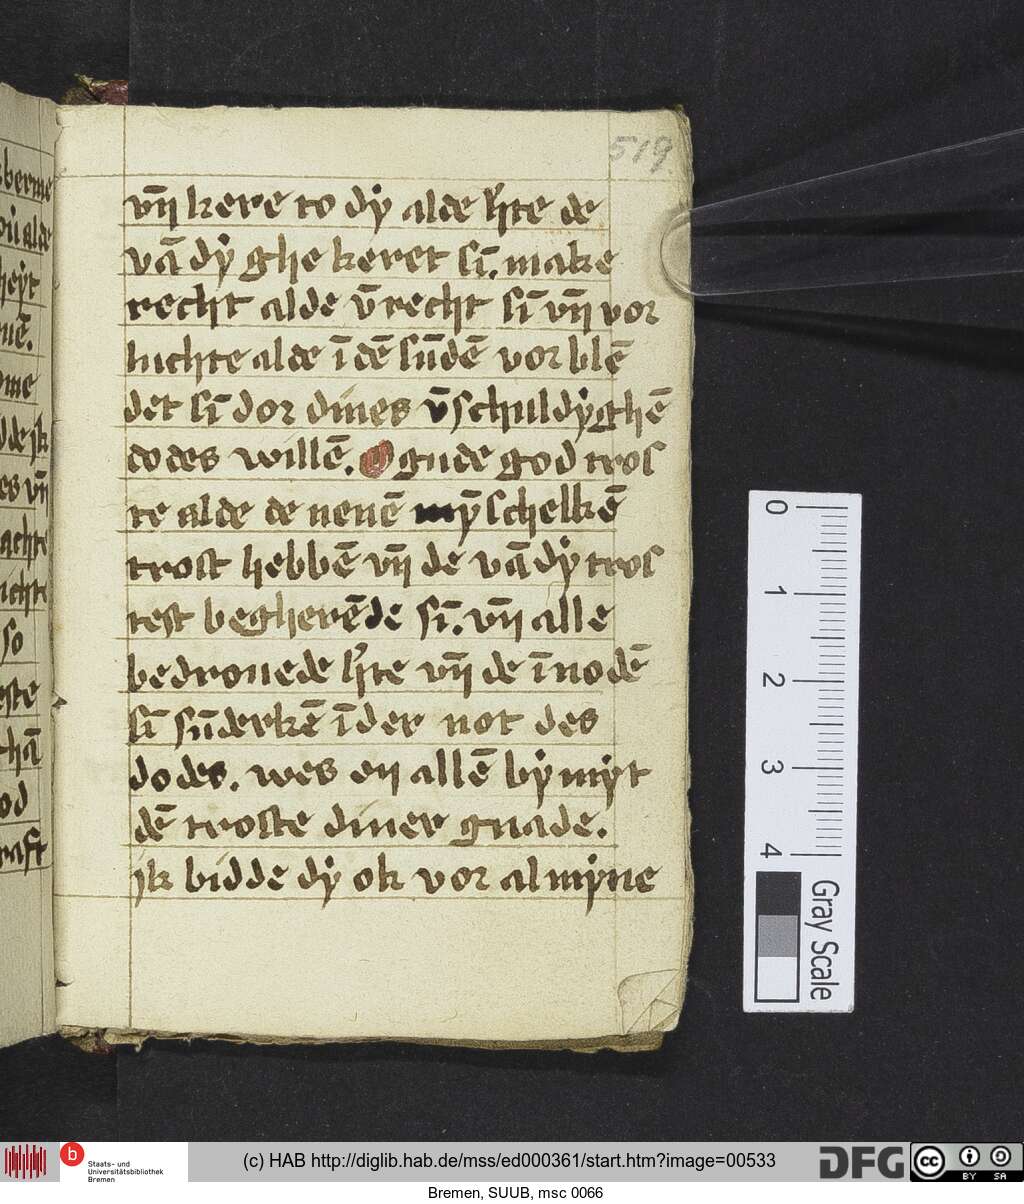 519
vn̄ kere to dẏ alde h'te de
vā dẏ ghe keret sī. make
recht alde v̄recht sī vn̄ vor
luchte alde ī dē sūdē vor blē
det sī dor dines v̄schuldẏghē
dodes willē. O gude god tros
te alde de nenē mẏ schelkē
trost hebbē vn̄ de vā dẏ tros
test begherēde sī. vn̄ alle
bedrouede h'te vn̄ de ī nodē
sī sūderkē ī der not des
dodes. wes en allē bẏ mẏt
dē troste diner gnade.
ik bidde dẏ ok vor al mẏne
berme
vn̄ alde
heẏt
me
de ik
es vn̄
achte
ichte
so
este
hā
od
raft
0
1
2
3
4
Gray Scale
b Staats- und
Universitätsbibliothek
Bremen
(c) HAB http://diglib.hab.de/mss/ed000361/start.htm?image=00533
DFG
cc BY SA
Bremen, SUUB, msc 0066